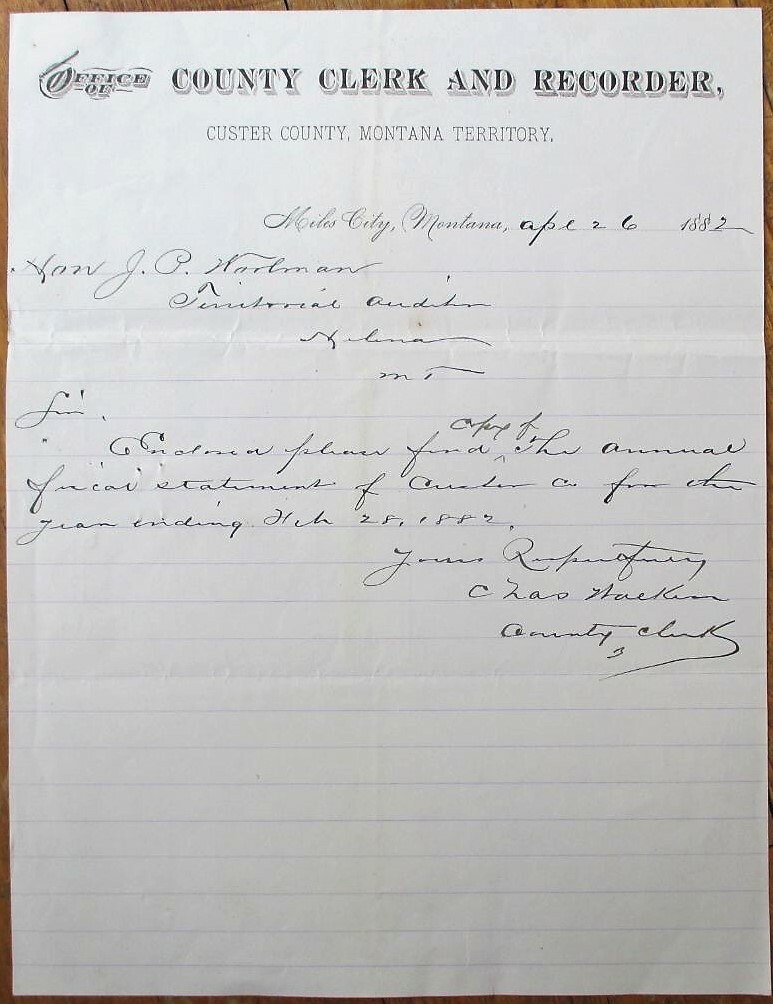 OFFICE OF COUNTY CLERK AND RECORDER,
CUSTER COUNTY, MONTANA TERRITORY.
Miles City, Montana, Apl 26 1882
Hon J. P. Woolman
Territorial Auditor
Helena
M T
Sir.
copy of
Enclosed please find ^ the annual
fiscal statement of Custer Co for the
year ending Feb 28, 1882.
Yours Respectfully
Chas
County Clerk